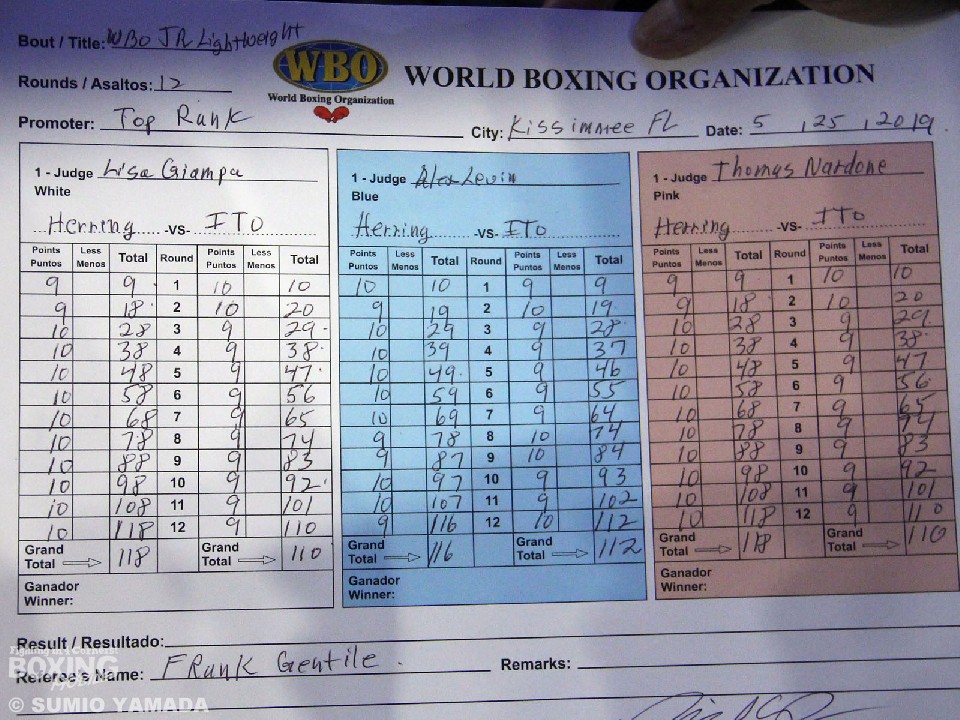 Bout / Title: WBO JR Lightweight
WBO
World Boxing Organization
WORLD BOXING ORGANIZATION
Rounds / Asaltos: 12
Promoter: Top Rank City: Kissimmee FL Date: 5 , 25 , 2019
1 - Judge Lisa Giampa
White
Herring -VS- ITO
Points Puntos Less Menos Total Round Points Puntos Less Menos Total
9 9 1 10 10
9 18 2 10 20
10 28 3 9 29
10 38 4 9 38
10 48 5 9 47
10 58 6 9 56
10 68 7 9 65
10 78 8 9 74
10 88 9 9 83
10 98 10 9 92
10 108 11 9 101
10 118 12 9 110
Grand Total 118 Grand Total 110
Ganador
Winner:
1 - Judge Alex Levin
Blue
Herring -VS- ITO
Points Puntos Less Menos Total Round Points Puntos Less Menos Total
10 10 1 9 9
9 19 2 10 19
10 29 3 9 28
10 39 4 9 37
10 49 5 9 46
10 59 6 9 55
10 69 7 9 64
9 78 8 10 74
9 87 9 10 84
10 97 10 9 93
10 107 11 9 102
9 116 12 10 112
Grand Total 116 Grand Total 112
Ganador
Winner:
1 - Judge Thomas Nardone
Pink
Herring -VS- ITO
Points Puntos Less Menos Total Round Points Puntos Less Menos Total
9 9 1 10 10
9 18 2 10 20
10 28 3 9 29
10 38 4 9 38
10 48 5 9 47
10 58 6 9 56
10 68 7 9 65
10 78 8 9 74
10 88 9 9 83
10 98 10 9 92
10 108 11 9 101
10 118 12 9 110
Grand Total 118 Grand Total 110
Ganador
Winner:
Result / Resultado:
Referee's Name: Frank Gentile. Remarks:
BOXING
© SUMIO YAMADA